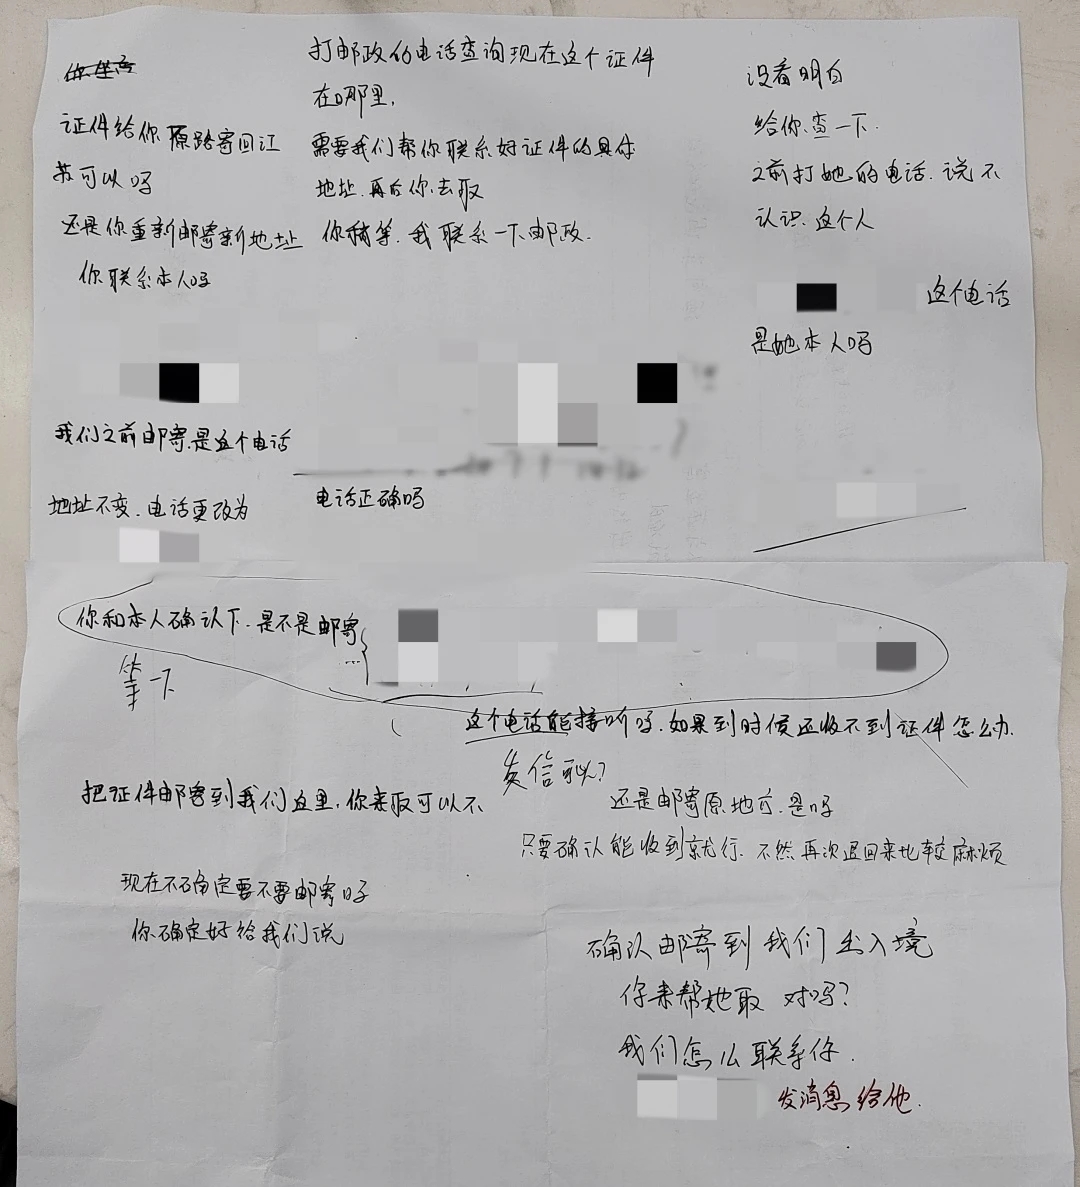 证件给你原路寄回江
苏可以吗
还是你重新邮寄新地址
你联系本人吗
我们之前邮寄是这个电话
地址不变.电话更改为
打邮政的电话查询现在这个证件
在哪里,
需要我们帮你联系好证件的具体
地址.再后你去取
你稍等.我联系一下邮政.
电话正确吗
没看明白
给你查一下.
之前打她的电话.说不
认识.这个人
这个电话
是她本人吗
你和本人确认下.是不是邮寄
等一下
这个电话能接听吗.如果到时候还收不到证件怎么办.
发信息?
把证件邮寄到我们这里,你来取可以不
还是邮寄原地方.是吗
只要确认能收到就行.不然再次退回来比较麻烦
现在不确定要不要邮寄时
你确定好给我们说
确认邮寄到我们出入境
你来帮她取 对吗?
我们怎么联系你.
发消息给他.